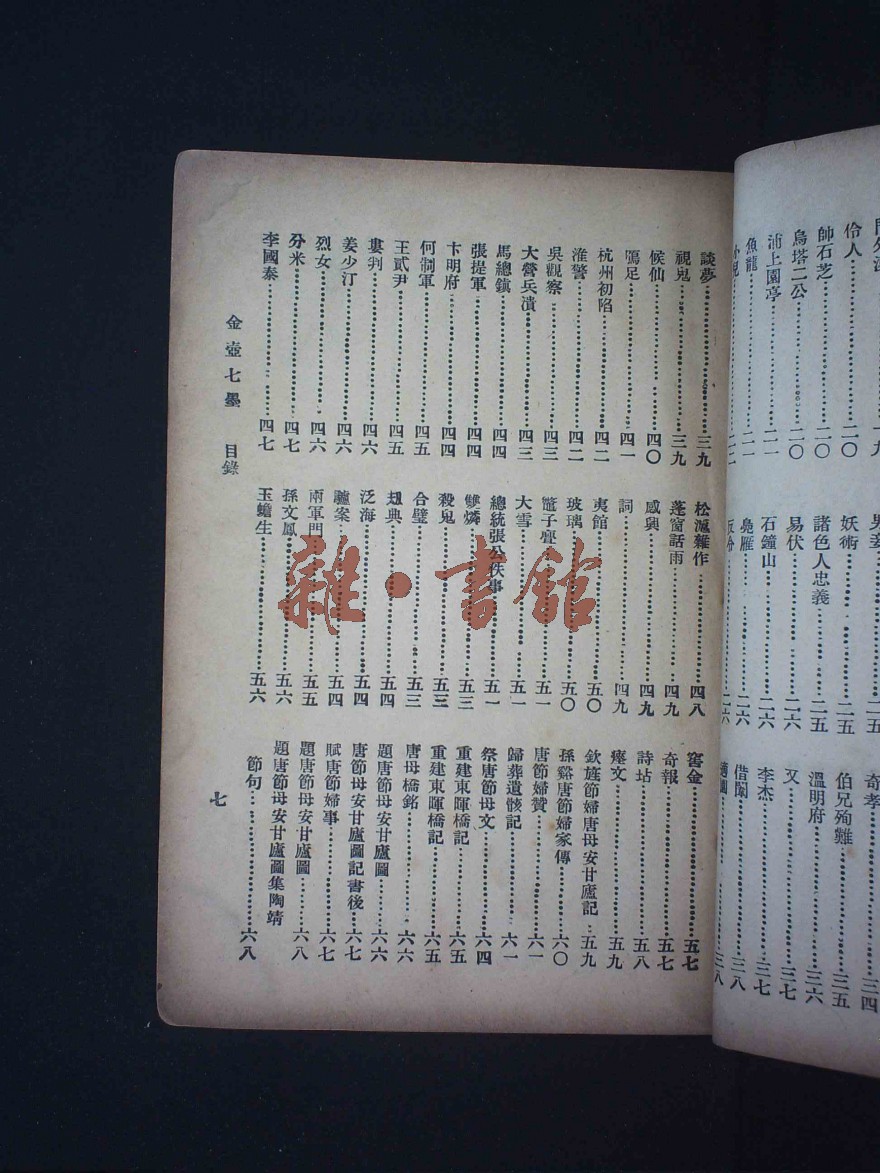 伶人……二〇
師石芝……二〇
烏塔二公……二〇
浦上園亭……二一
魚龍……二一
妖術……二五
諸色人忠義……二五
易伏……二六
石鐘山……二六
鳧雁……二六
奇孝……三四
伯兄殉難……三五
溫明府……三六
又……三七
李杰……三七
借閣……三八
談夢……三九
視鬼……三九
候仙……四〇
四一
杭州初陷……四二
淮警……四二
吳觀察……四三
大營兵潰……四三
馬總鎮……四四
張提軍……四四
卞明府……四四
何制軍……四五
王貳尹……四五
婁判……四六
姜少汀……四六
烈女……四六
分米……四七
李國泰……四七
松滬雜作……四八
蓬窗話雨……四九
感興……四九
詞……四九
夷館……五〇
玻璃……五〇
五一
大雪……五一
總統張公佚事……五一
雙燐……五三
殺鬼……五三
合璧……五三
五四
泛海……五四
驢案……五四
兩軍門……五五
孫文鳳……五六
玉蟾生……五六
窖金……五七
奇報……五七
詩坫……五八
瘞文……五九
欽旌節婦唐母安甘廬記……五九
孫谿唐節婦家傳……六〇
唐節婦贊……六一
歸葬遺骸記……六一
祭唐節母文……六四
重建東暉橋記……六五
重建東暉橋記……六五
唐母橋銘……六六
題唐節母安甘廬圖……六六
唐節母安甘廬圖記書後……六七
賦唐節婦事……六七
題唐節母安甘廬圖……六八
題唐節母安甘廬圖集陶靖
節句……六八
金壺七墨 目錄
七
雜·書館